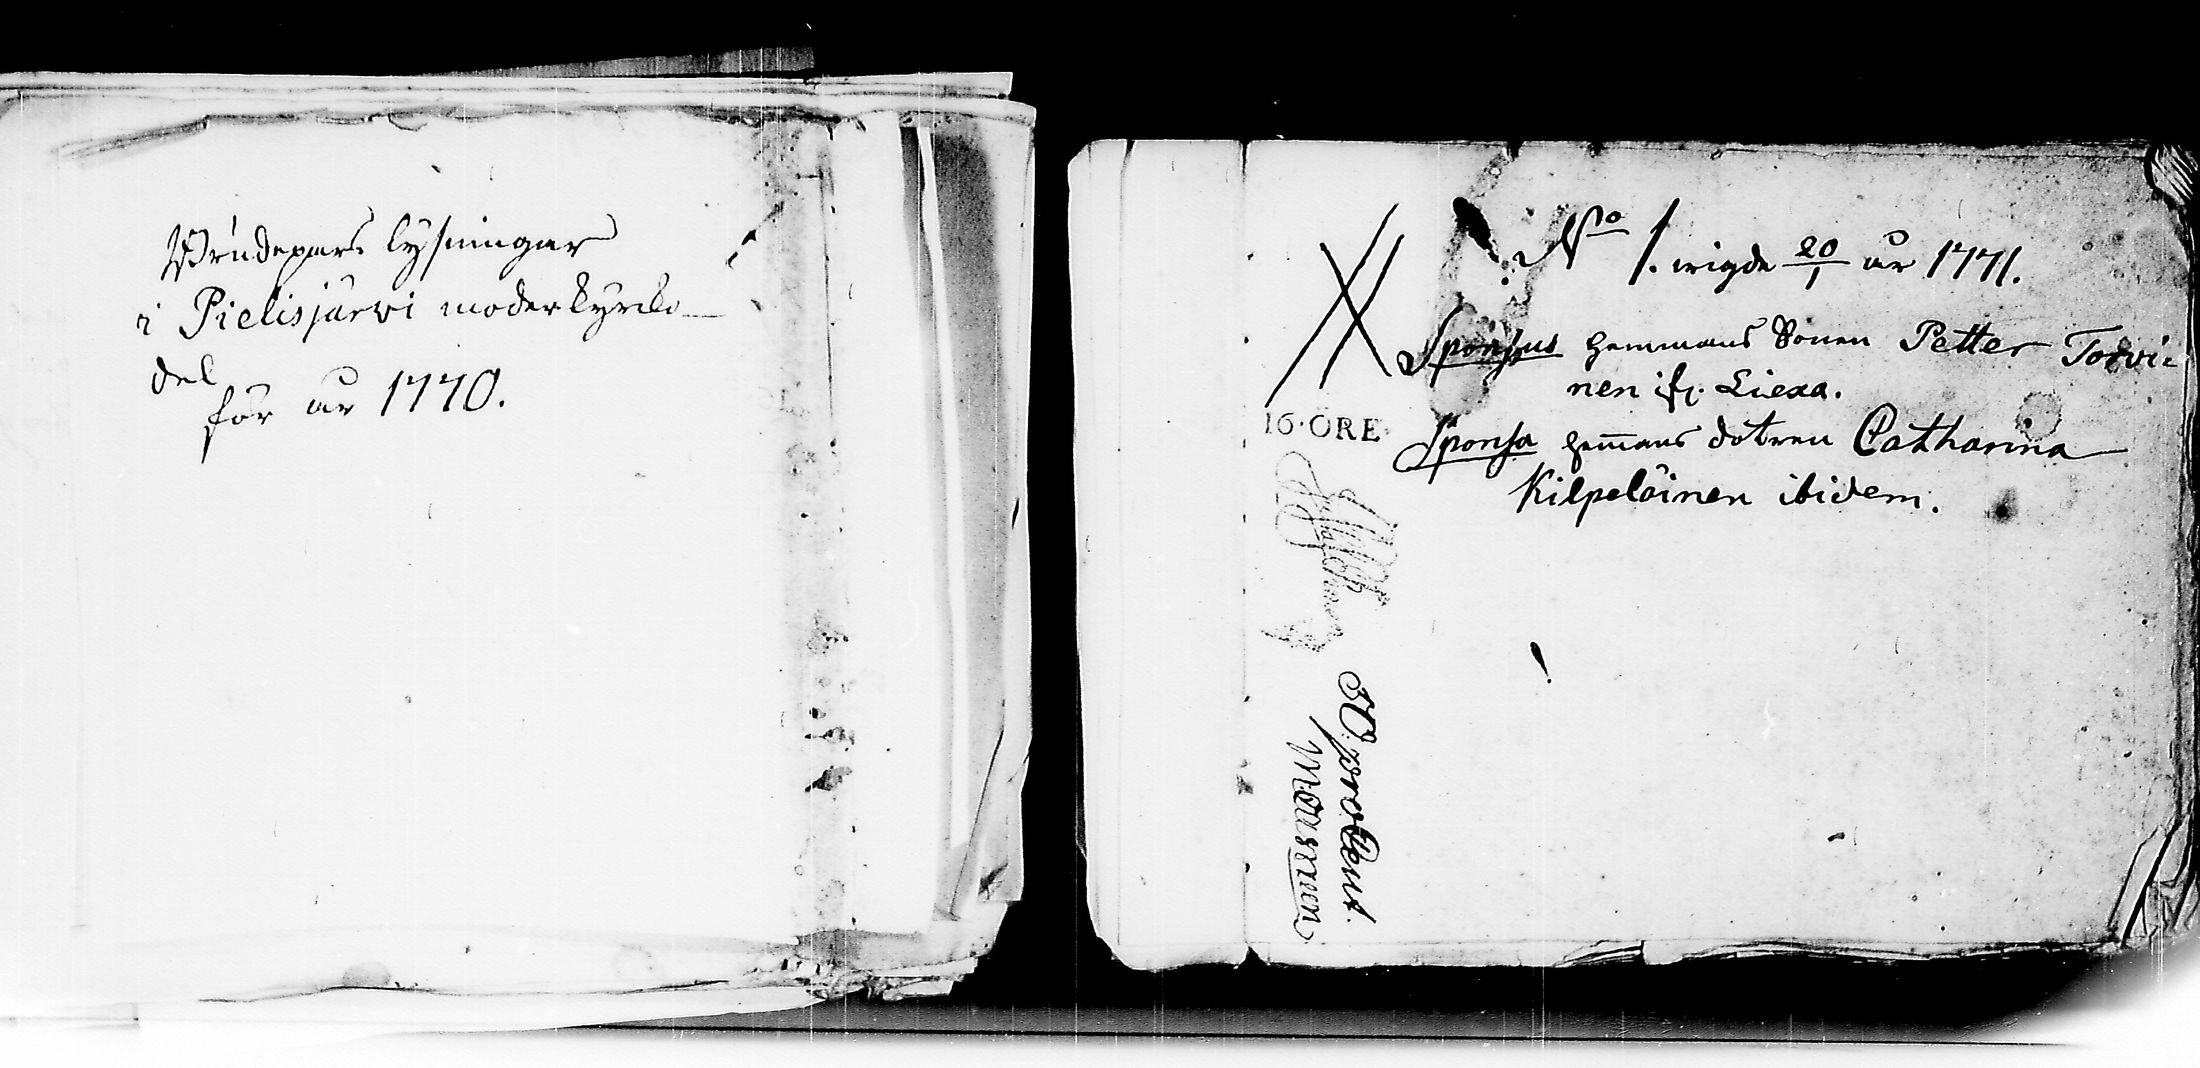 Brudepars lysningar
i Pielisjärwi moderkyrko
del
för år 1770.
No 1. wigde 20/1 år 1771.
Sponsus Hemmans Sonen Petter Torwi=
nen ifr. Liexa.
16·ÖRE
Sponsa hem̄ans dotren Catharina
Kilpeläinen ibidem.